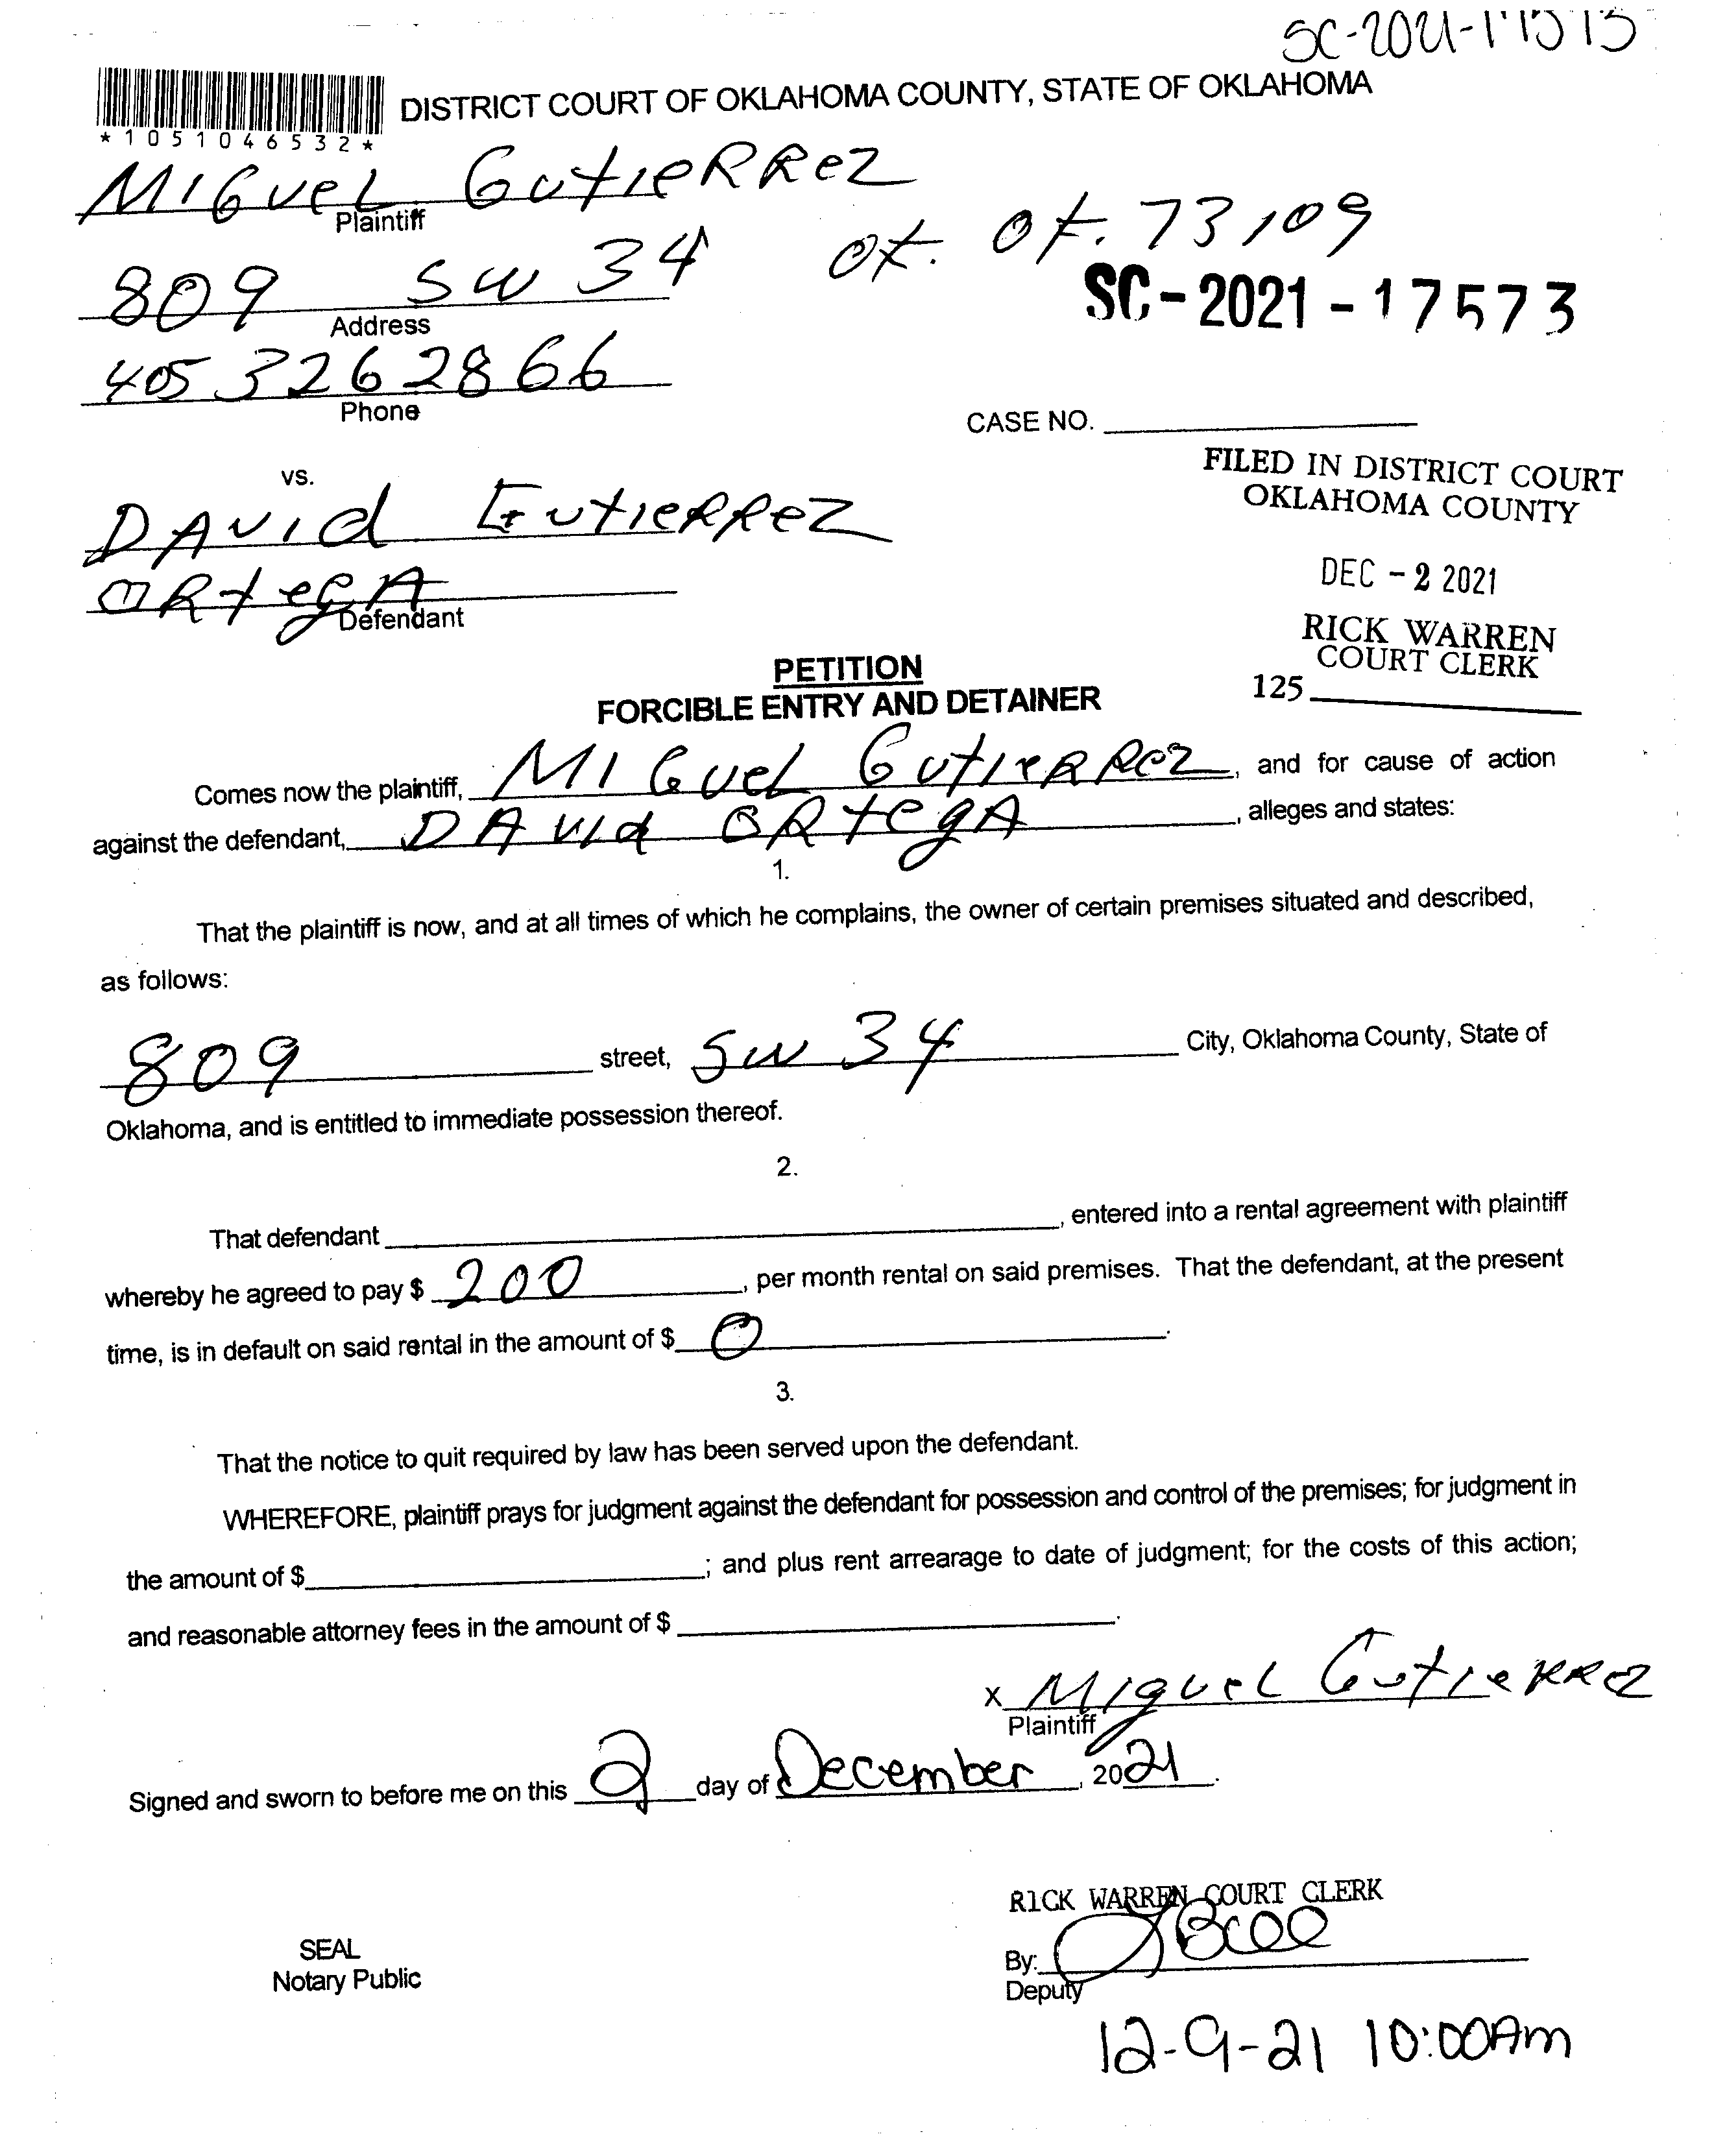 SC-2021-17573
DISTRICT COURT OF OKLAHOMA COUNTY, STATE OF OKLAHOMA
*1051046532*
MIGUEL GUTIERREZ
Plaintiff
809 SW 34 OK. OK. 73109
Address
SC-2021-17573
405 3262866
Phone
CASE NO.
vs.
FILED IN DISTRICT COURT
OKLAHOMA COUNTY
DAVId GUTIERREZ
ORTEgA
Defendant
DEC -2 2021
RICK WARREN
COURT CLERK
125
PETITION
FORCIBLE ENTRY AND DETAINER
Comes now the plaintiff, MIGUEL GUTIERREZ, and for cause of action
against the defendant, DAVId ORTEgA, alleges and states:
1.
That the plaintiff is now, and at all times of which he complains, the owner of certain premises situated and described,
as follows:
809 street, SW 34 City, Oklahoma County, State of
Oklahoma, and is entitled to immediate possession thereof.
2.
That defendant , entered into a rental agreement with plaintiff
whereby he agreed to pay $ 200, per month rental on said premises. That the defendant, at the present
time, is in default on said rental in the amount of $ 0.
3.
That the notice to quit required by law has been served upon the defendant.
WHEREFORE, plaintiff prays for judgment against the defendant for possession and control of the premises; for judgment in
the amount of $ ; and plus rent arrearage to date of judgment; for the costs of this action;
and reasonable attorney fees in the amount of $ .
X MIgUEL GUTIERREZ
Plaintiff
Signed and sworn to before me on this 2 day of December, 2021.
RICK WARREN COURT CLERK
SEAL
Notary Public
By:
Deputy
12-9-21 10:00Am